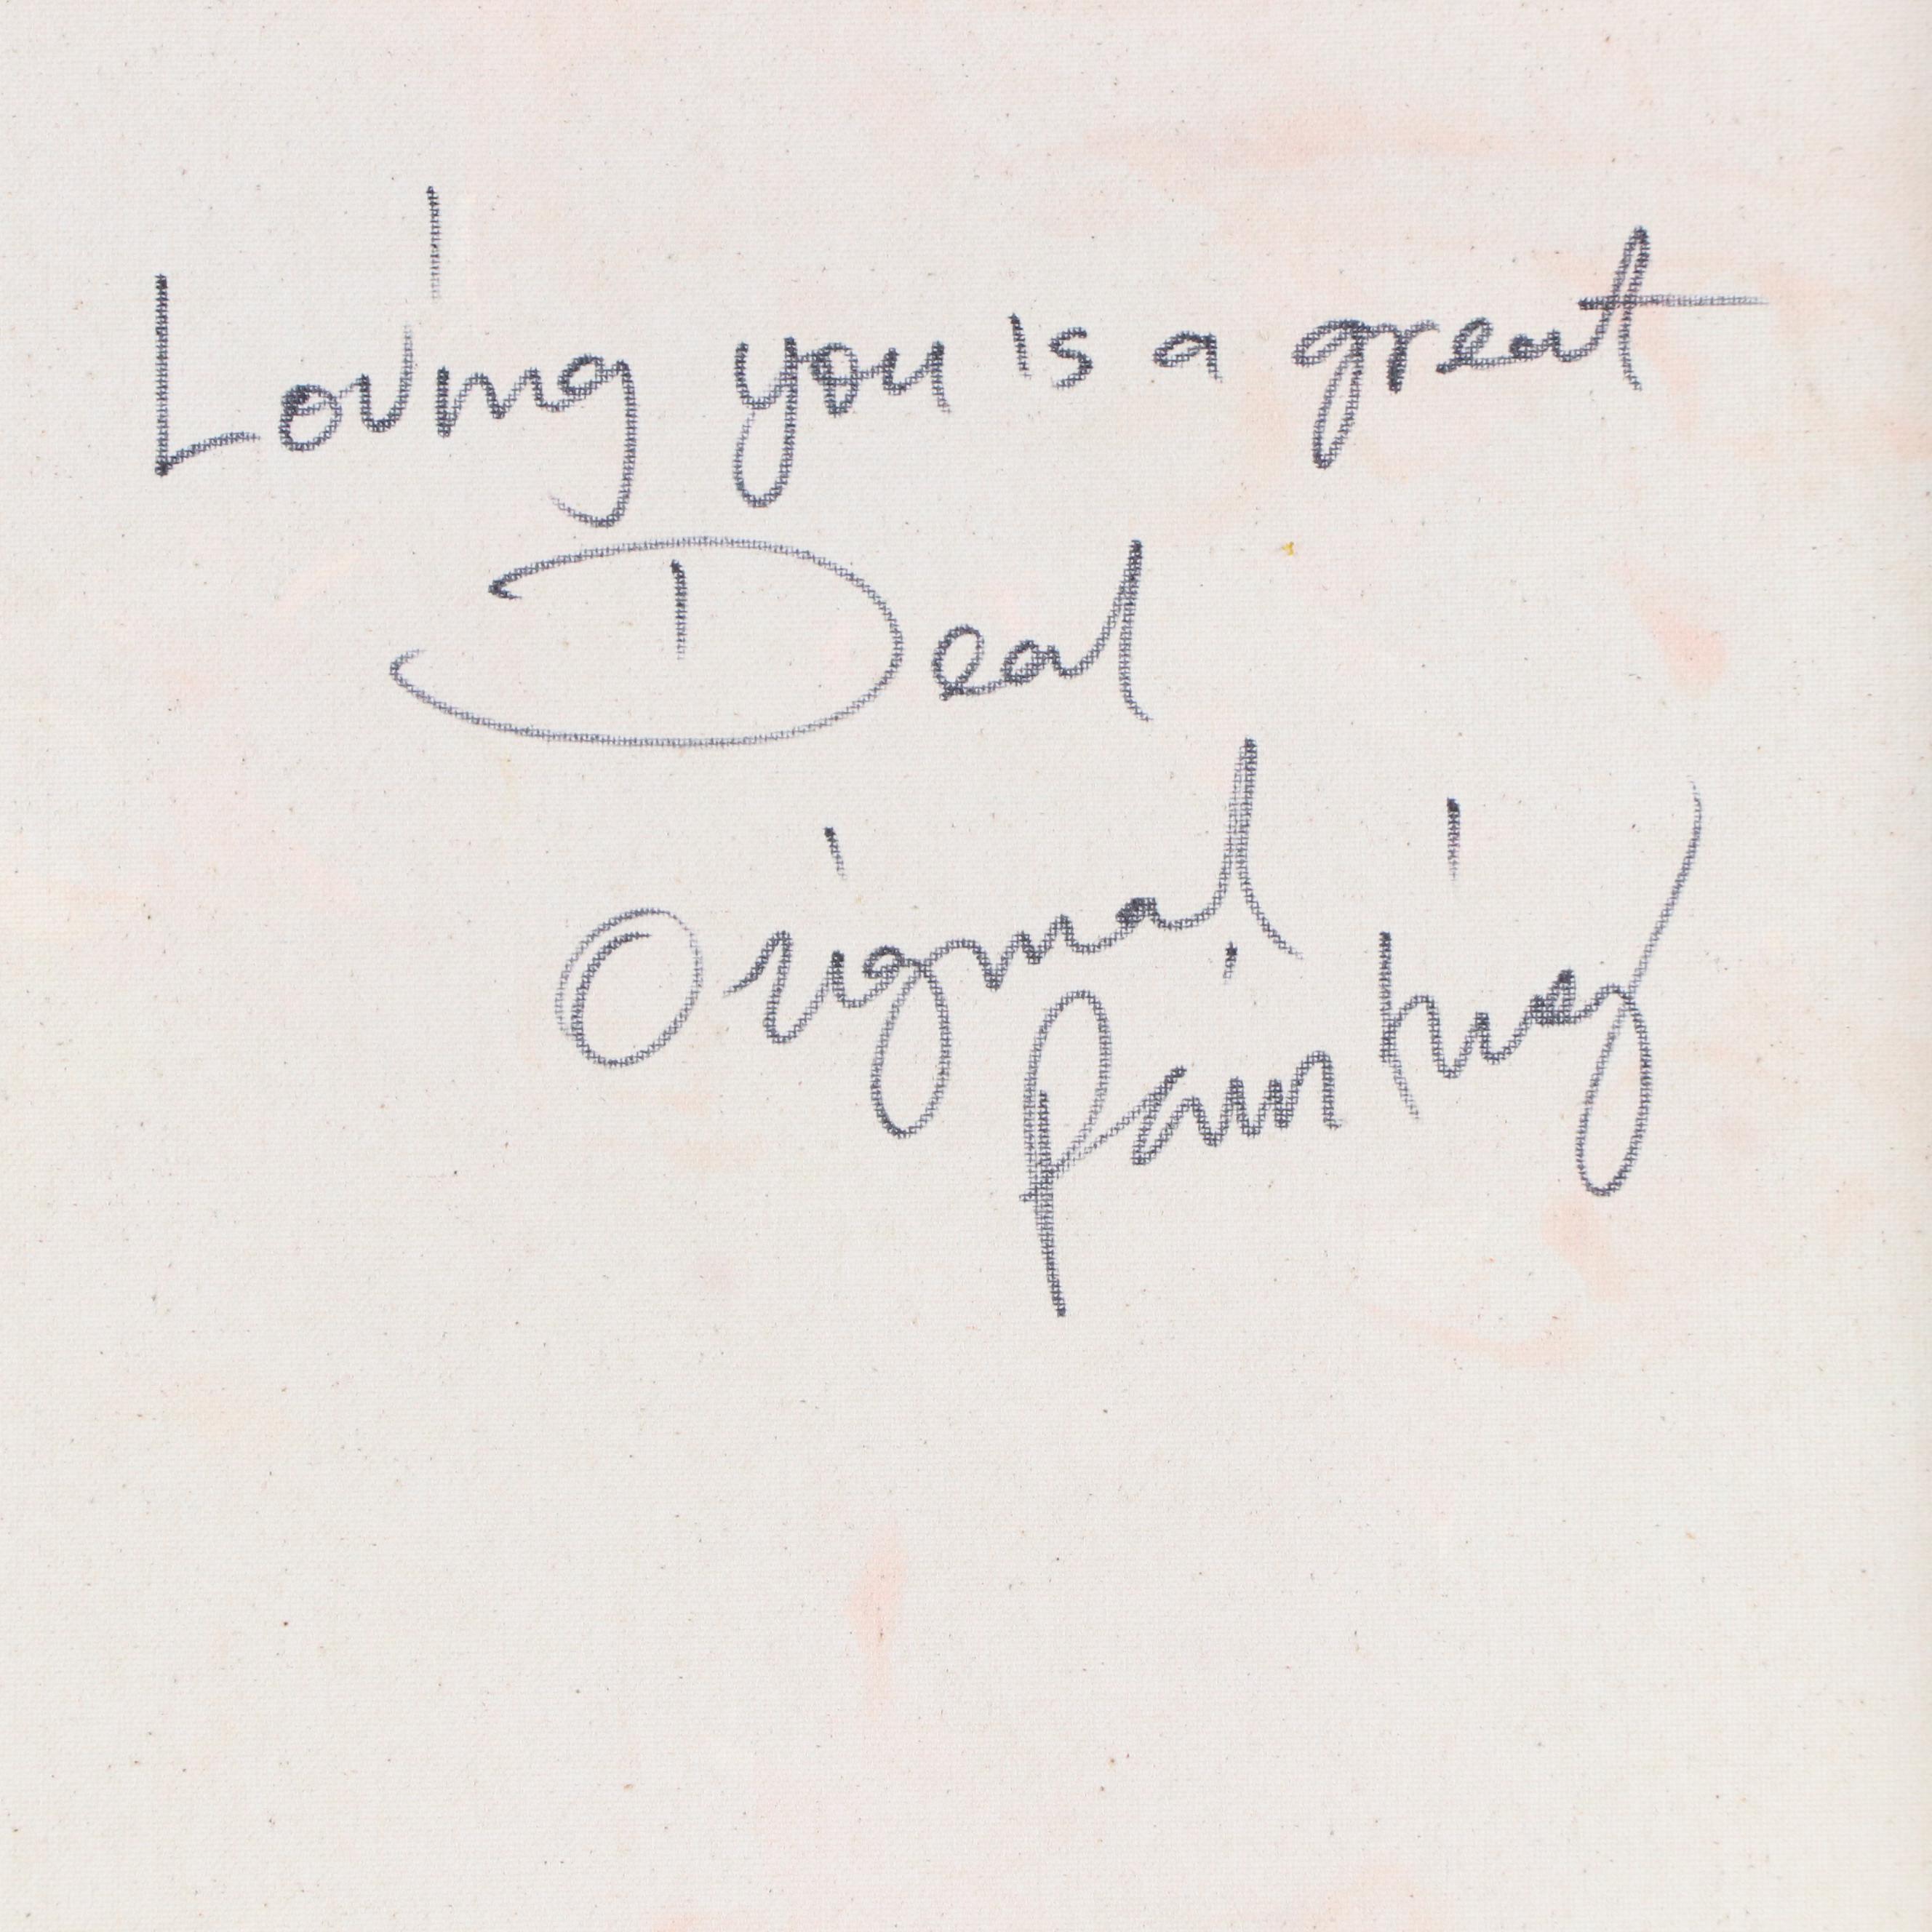 Loving you is a great
Deal
Original
Painting